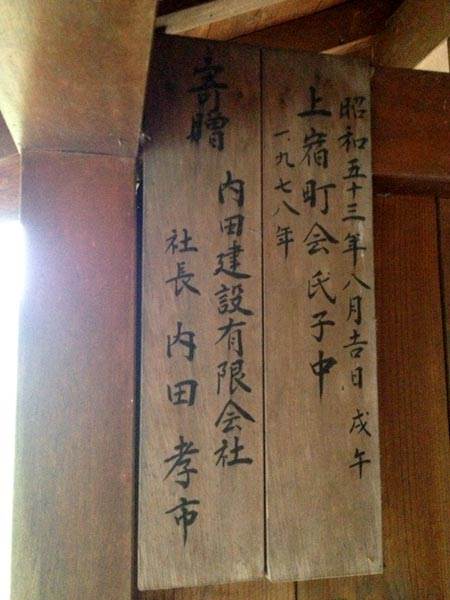 昭和五十三年八月吉日 戊午
上宿町会氏子中
一九七八年
寄贈
内田建設有限会社
社長 内田孝市